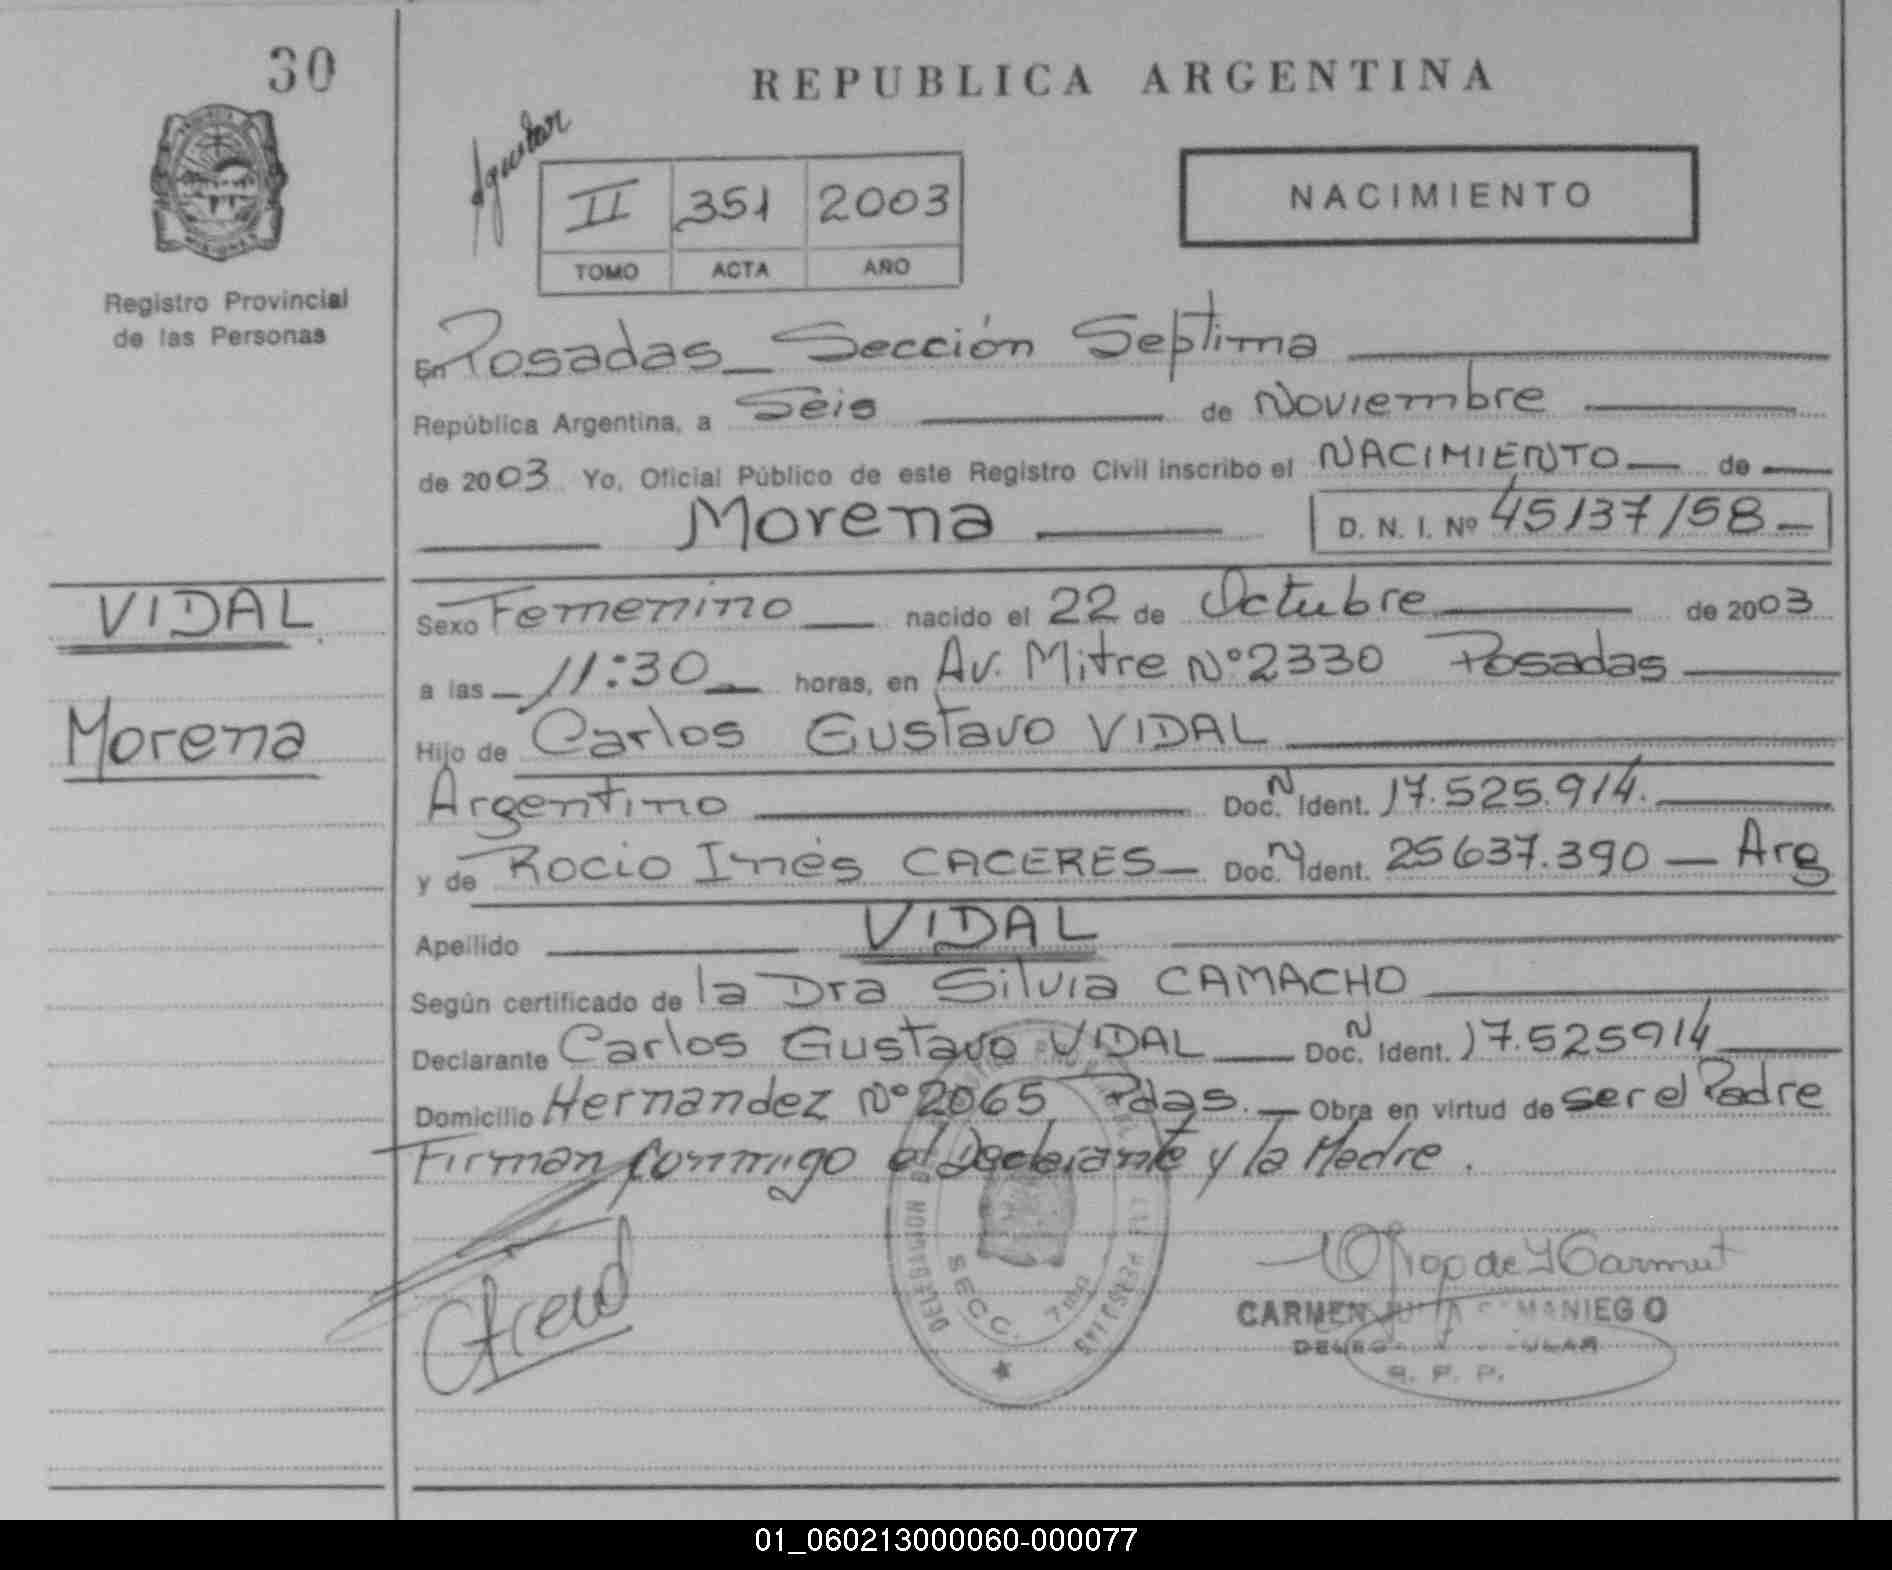 30
REPUBLICA ARGENTINA
II 351 2003
TOMO ACTA AÑO
NACIMIENTO
Registro Provincial
de las Personas
En Posadas Sección Septima
República Argentina, a Seis de Noviembre
de 2003 Yo, Oficial Público de este Registro Civil inscribo el NACIMIENTO de
Morena D. N. I. Nº 45137158
VIDAL
Morena
Sexo Femenino nacido el 22 de Octubre de 2003
a las 11:30 horas, en Av. Mitre Nº 2330 Posadas
Hijo de Carlos Gustavo VIDAL
Argentino Doc. N Ident. 17.525.914.
y de Rocio Inés CACERES Doc. N Ident. 25637.390 Arg
Apellido VIDAL
Según certificado de la Dra Silvia CAMACHO
Declarante Carlos Gustavo VIDAL Doc. N Ident. 17.525914
Domicilio Hernandez Nº 2065 Pdas. Obra en virtud de ser el Padre
Firman conmigo el Declarante y la Madre.
SECC. 7ma
CARMEN MANIEGO
R. P. P.
01_060213000060-000077